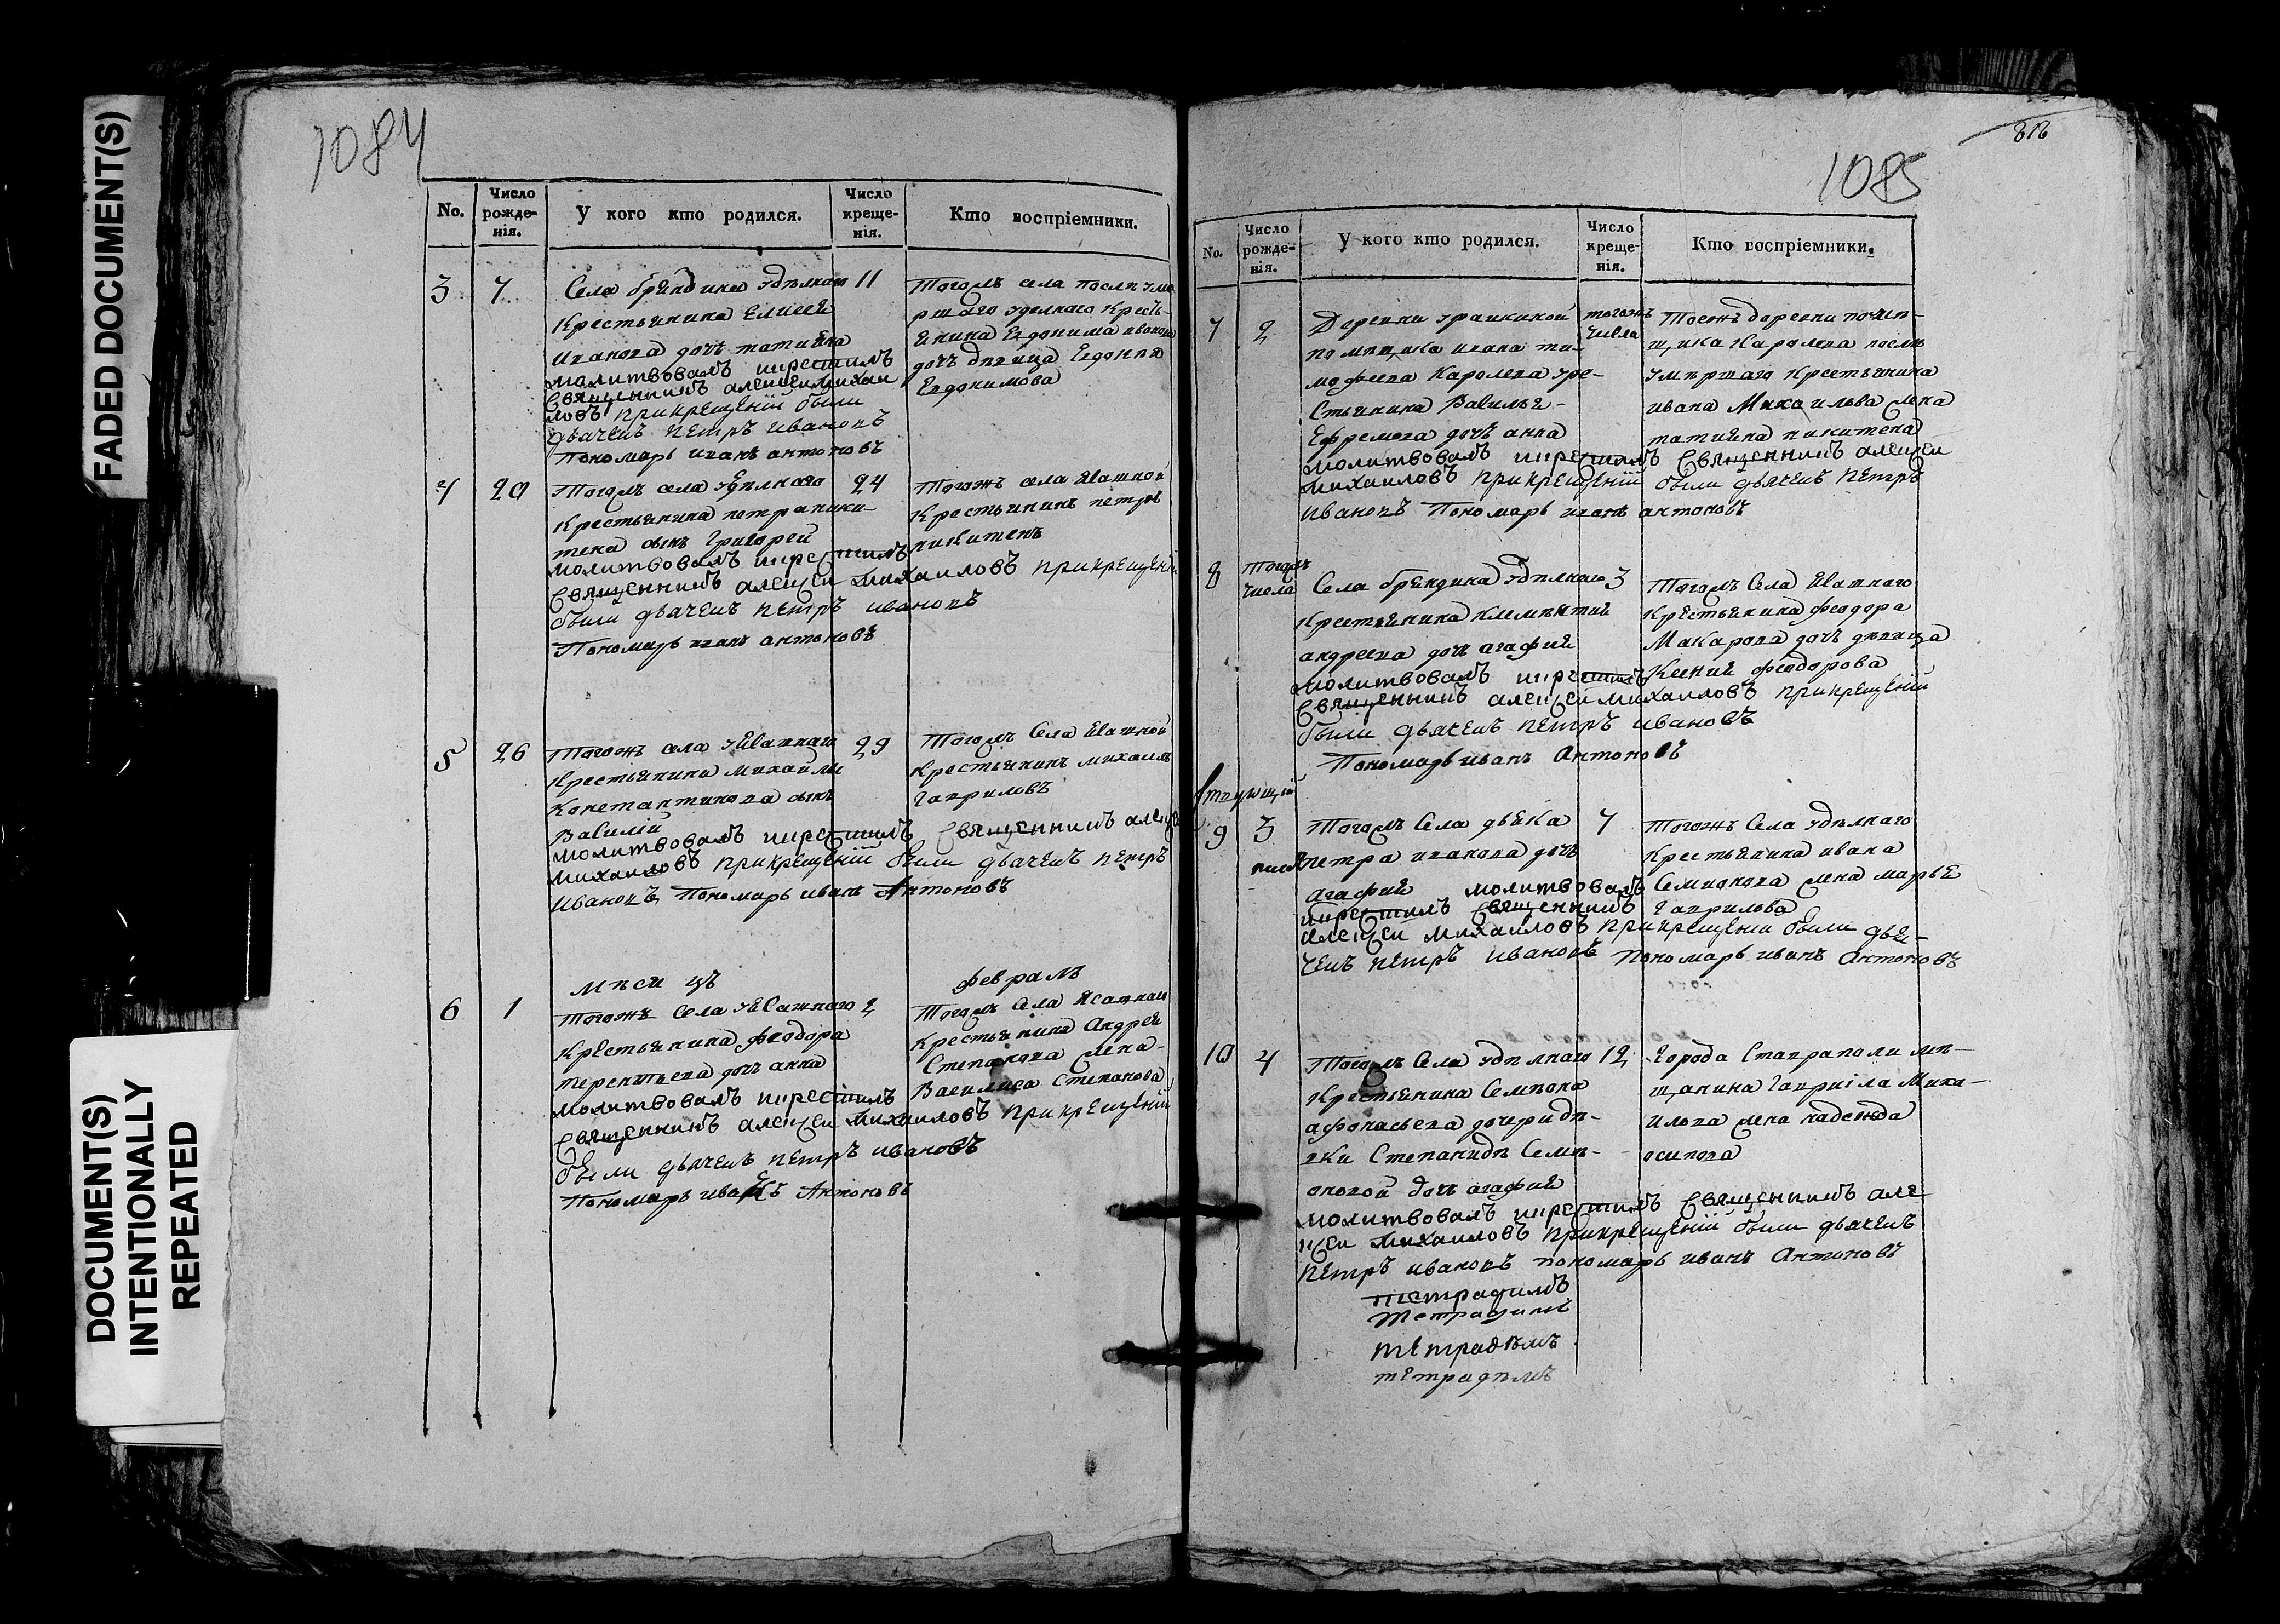 FADED DOCUMENT(S)
DOCUMENT(S)
INTENTIONALLY
REPEATED
1084
No.
Число рожденія.
У кого кто родился.
Число крещенія.
Кто воспріемники.
3 7 11
Села брендина удѣлнаго
Крестьянина Елисея
Иванова дочь татияна
молитвовалъ икрестилъ
Священникъ алексеи михаи
ловъ прикрещенїи были
дьячекъ петръ Ивановъ
Пономарь иванъ антоновъ
Тогожъ села послѣ уме
ршаго уделнаго крестъ-
янина Евдокима иванова
дочъ дѣвица Евдокия
Евдокимова
4 20 24
Тогожъ села удѣлнаго
Крестьянина петра ники-
тена сынъ Григорей
молитвовалъ икрестилъ
Священникъ алексеи михаиловъ прикрещенїи
были дьячекъ петръ ивановъ
Пономарь иванъ антоновъ
Тогожъ села Ясашной
Крестьянинъ петръ
никитенъ
5 26 29
Тогожъ села Ясашнаго
Крестьянина михайлы
Константинова сынъ
Василїй
молитвовалъ икрестилъ Священникъ алексеи
михаиловъ прикрещенїи были дьячекъ петръ
Ивановъ Пономарь иванъ Антоновъ
Тогожъ Села Ясашной
Крестьянинъ михаилъ
Гавриловъ
мѣсяцъ февраль
6 1 2
Тогожъ Села Ясашнаго
Крестьянина феодора
терентьева дочь анна
молитвовалъ икрестилъ
Священникъ алексеи михаиловъ прикрещенїи
были дьячекъ петръ ивановъ
Пономарь иванъ Антоновъ
Тогожъ Села Ясашнаго
Крестьянина Андрея
Степанова жена
Василиса Степанова
818
1085
No.
Число рожденія.
У кого кто родился.
Число крещенія.
Кто воспріемники.
7 2 тогожъ числа
Деревни
помещика ивана ти-
мофеева Каролева кре-
стьянина Василья
Ефремова дочъ анна
молитвовалъ икрестилъ Священникъ алексеи
михаиловъ прикрещенїи были дьячекъ петръ
Ивановъ Пономарь иванъ антоновъ
Тоежъ деревни помѣ-
щика Каролева послѣ
умѣршаго Крестьянина
ивана Михаильва жена
татияна никитена
8 тогожъ числа 3
Села брендина удѣлнаго
Крестьянина клемѣнтия
андреева дочь агафия
молитвовалъ икрестилъ
Священникъ алексеи михаиловъ прикрещенїи
были дьячекъ петръ ивановъ
Пономарь иванъ Антоновъ
Тогожъ Села Ясашнаго
Крестьянина феодора
Макарова дочъ дѣвица
Ксения феодорова
9 3 7
Тогожъ Села дьяка
петра иванова дочъ
агафия молитвовалъ
икрестилъ священникъ
алексеи михаиловъ прикрещении были дья-
чекъ петръ ивановъ Пономарь иванъ Антоновъ
Тогожъ Села удѣлнаго
крестьянина ивана
Семионова жена марья
Гаврильва
10 4 12
Тогожъ Села удѣлнаго
Крестьянина Семиона
афонасьева дочери дѣ-
вки Степаниды Семи-
оновой дочъ агафия
молитвовалъ икрестилъ Священникъ але
ксеи михаиловъ прикрещенїи были дьячекъ
петръ ивановъ пономарь иванъ Антоновъ
Города Ставраполи мѣ-
щанина Гавриїла Миха-
илова жена надежда
осипова